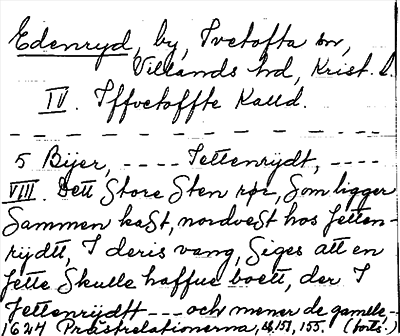 Edenryd, by, Ivetofta sn,
Villands hd, Krist. l.
IV. Iffvetoffte Kalld.
5 Bijer, ---- Jettenrijdt, ----
VIII. Dett Store Sten rør, Som ligger
Sammen kaSt, nordveSt hos Jetten-
rijdtt, I deris vang, Siges att en
Jette Skulle haffue boett, der I
Jettenrijdtt --- och mener de gamle --
1624 Prästrelationerna, 151, 153. (forts.)